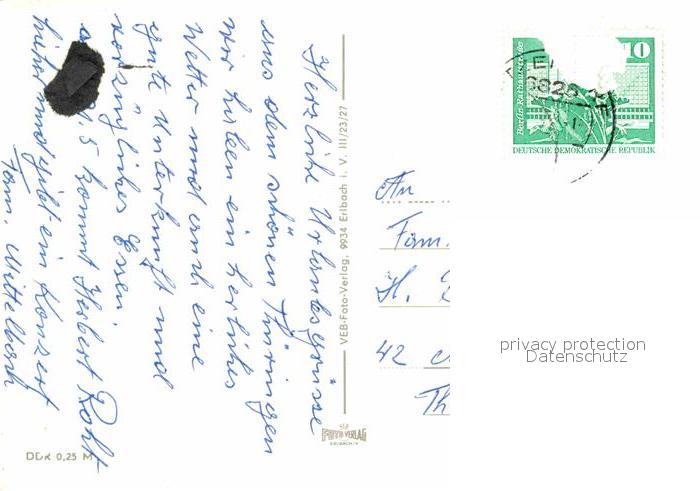 Herzliche Urlaubsgrüsse
aus dem schönen Thüringen
Wir haben ein herliches
Wetter und auch eine
gute Unterkunft und
vorzügliches Essen.
5 kommt Herbert Roht
hüher und gibt ein Konzert
Fam. Mittelbach
DDR 0,25 M
VEB-Foto-Verlag, 9934 Erlbach i. V. III/23/27
FOTO-VERLAG
ERLBACH/V
Berlin Rathausstraße
10
DEUTSCHE DEMOKRATISCHE REPUBLIK
An
Fam.
H.
42
Th
privacy protection
Datenschutz